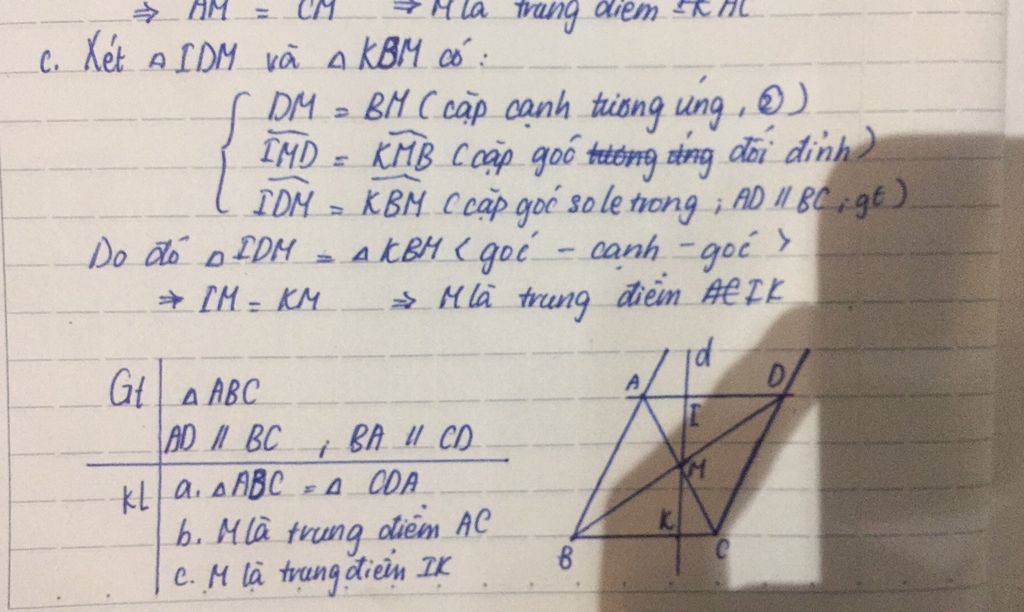 ⇒ AM = CM ⇒ M là trung điểm IK AC
c. Xét △ IDM và △ KBM có:
DM = BM (cặp cạnh tương ứng, ②)
IMD = KMB (cặp góc tương ứng đối đỉnh)
IDM = KBM (cặp góc so le trong; AD // BC; gt)
Do đó △ IDM = △ KBM <góc - cạnh - góc>
⇒ IM = KM ⇒ M là trung điểm AC IK
Gt △ ABC
AD // BC ; BA // CD
kl a. △ABC = △ CDA
b. M là trung điểm AC
c. M là trung điểm IK
A d D
I
M
K
B C